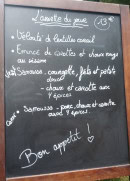 L'assiette du jour 13€
• Velouté de lentilles corail
• Emincé de carottes et choux rouge
au sésame
• Samoussa - courgette, feta et potate
douce
- choux et carotte aux
4 épices
• Samoussa - porc, choux et carotte
aux 4 épices
Bon appetit !